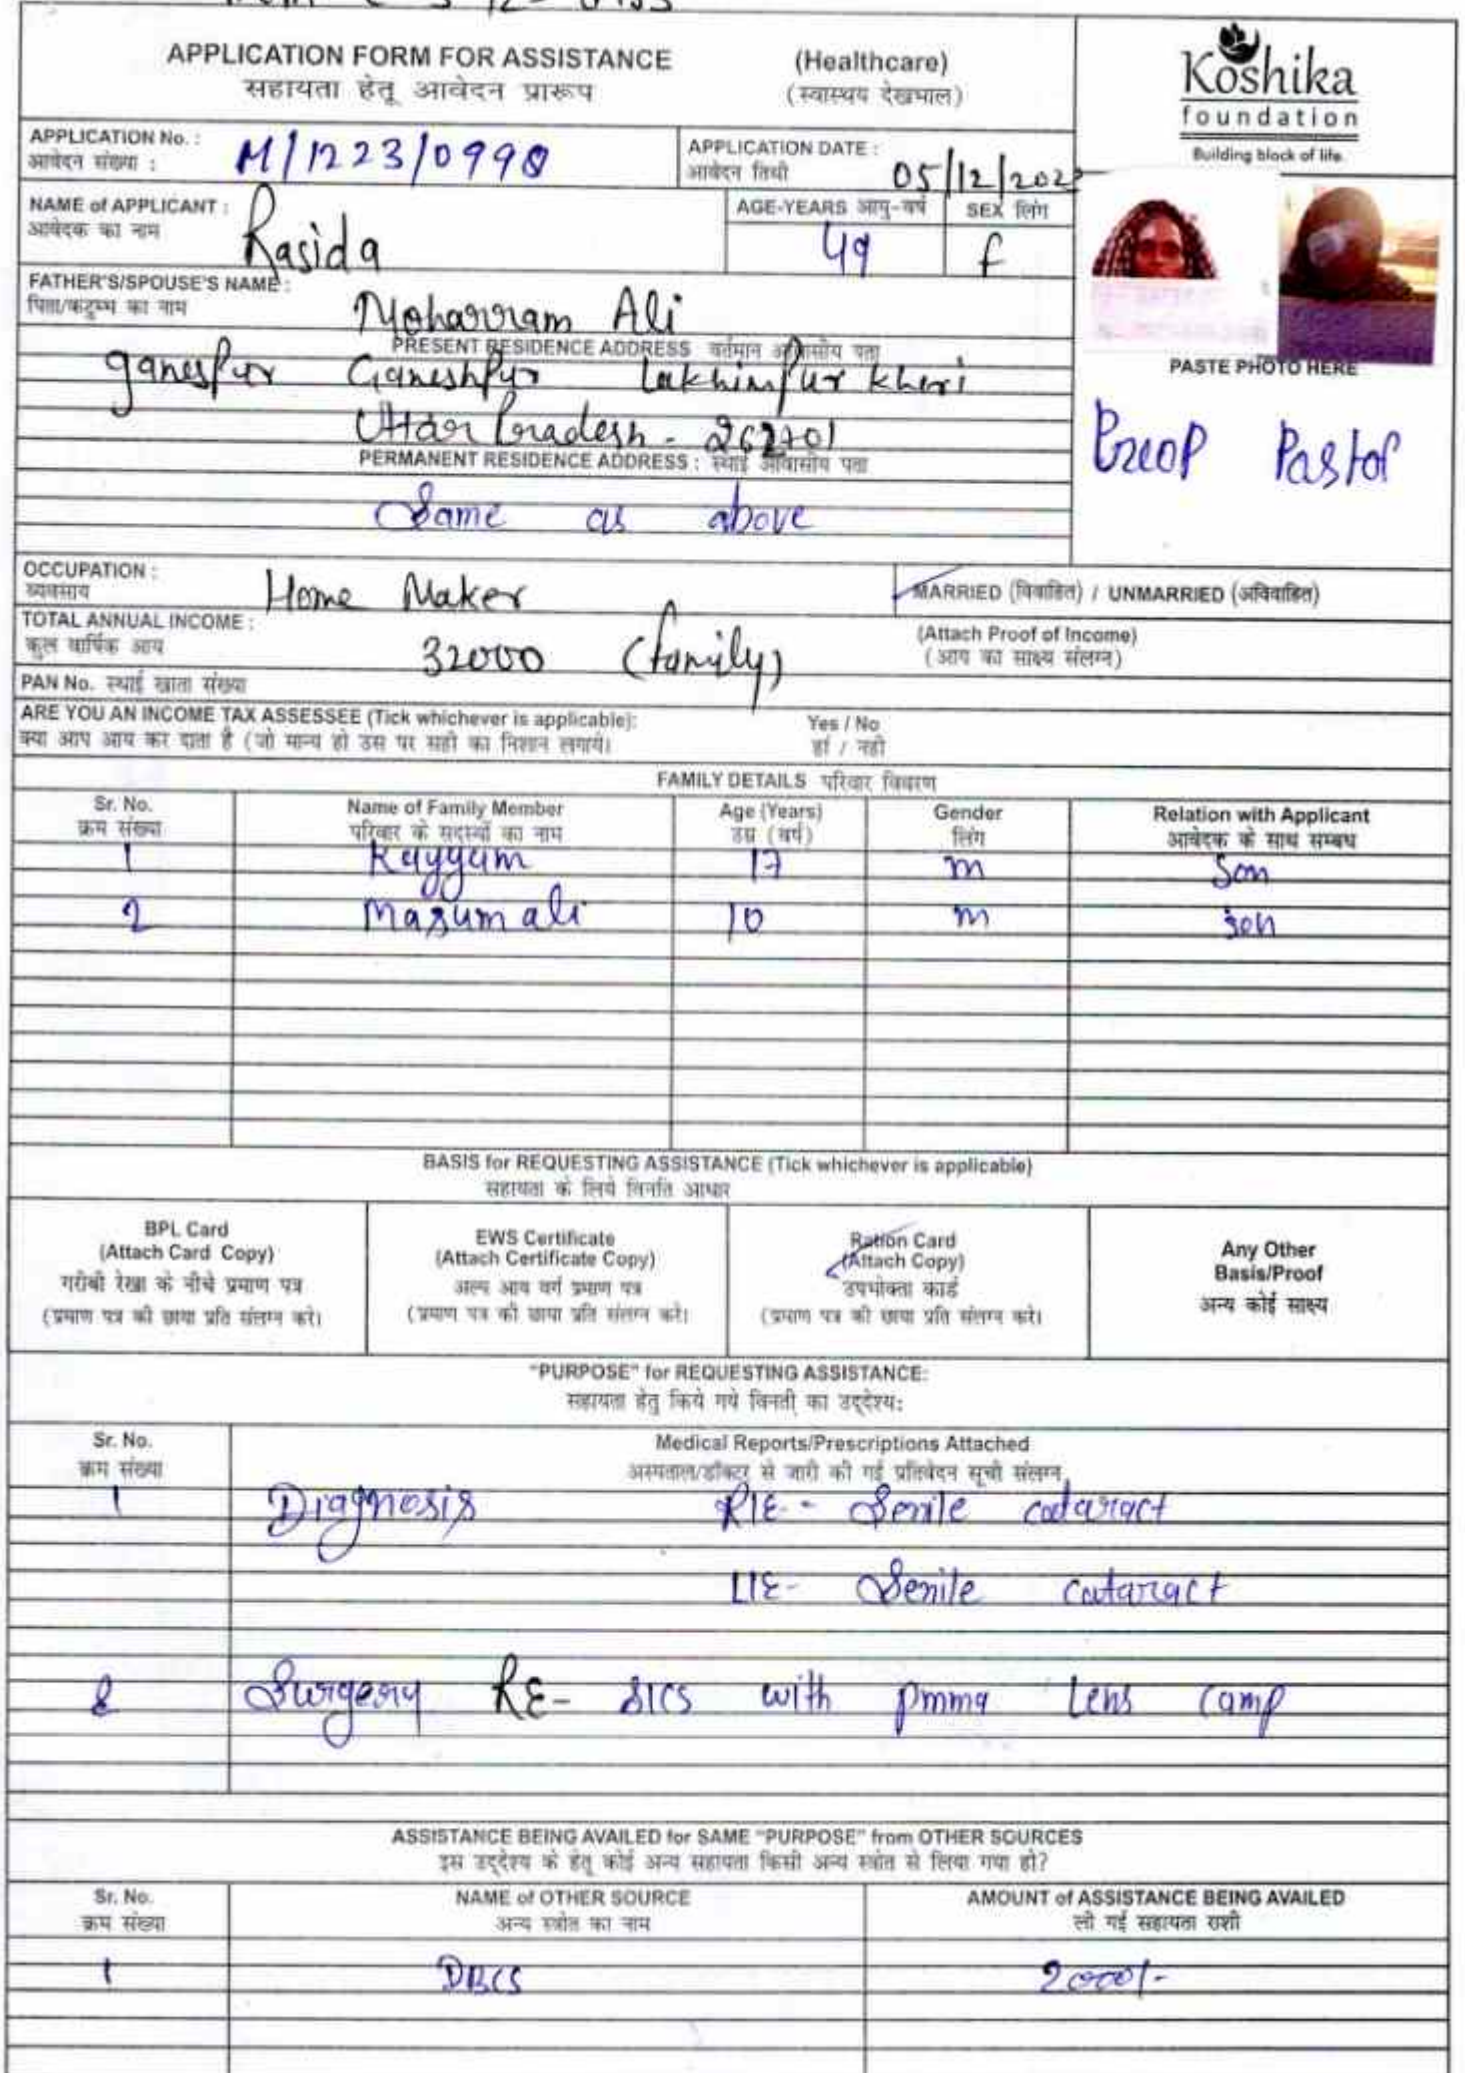 APPLICATION FORM FOR ASSISTANCE (Healthcare)
सहायता हेतू आवेदन प्रारूप (स्वास्थय देखभाल)
Koshika
foundation
Building block of life.
APPLICATION No. : M/1223/0998
आवेदन संख्या :
APPLICATION DATE : 05/12/202
आवेदन तिथी
NAME of APPLICANT : Rasida
आवेदक का नाम
AGE-YEARS आयु-वर्ष 49
SEX लिंग f
FATHER'S/SPOUSE'S NAME : Moharram Ali
पिता/कटुम्भ का नाम
PRESENT RESIDENCE ADDRESS वर्तमान आवासीय पता
ganespur Ganeshpur Lakhimpur kheri
Uttar Pradesh - 262701
PERMANENT RESIDENCE ADDRESS : स्थाई आवासीय पता
Same as above
PASTE PHOTO HERE
Preop Postop
OCCUPATION : Home Maker
व्यवसाय
MARRIED (विवाहित) / UNMARRIED (अविवाहित)
TOTAL ANNUAL INCOME : 32000 (family)
कुल वार्षिक आय
(Attach Proof of Income)
(आय का साक्ष्य संलग्न)
PAN No. स्थाई खाता संख्या
ARE YOU AN INCOME TAX ASSESSEE (Tick whichever is applicable): Yes / No
क्या आप आय कर दाता है (जो मान्य हो उस पर सही का निशान लगाये। हां / नही
FAMILY DETAILS परिवार विवरण
Sr. No. Name of Family Member Age (Years) Gender Relation with Applicant
क्रम संख्या परिवार के सदस्यों का नाम उम्र (वर्ष) लिंग आवेदक के साथ सम्बध
1 Kayyum 17 m Son
2 Masum ali 10 m son
BASIS for REQUESTING ASSISTANCE (Tick whichever is applicable)
सहायता के लिये विनति आधार
BPL Card
(Attach Card Copy)
गरीबी रेखा के नीचे प्रमाण पत्र
(प्रमाण पत्र की छाया प्रति संलग्न करे।
EWS Certificate
(Attach Certificate Copy)
अल्प आय वर्ग प्रमाण पत्र
(प्रमाण पत्र की छाया प्रति संलग्न करे।
Ration Card
(Attach Copy)
उपभोक्ता कार्ड
(प्रमाण पत्र की छाया प्रति संलग्न करे।
Any Other
Basis/Proof
अन्य कोई साक्ष्य
"PURPOSE" for REQUESTING ASSISTANCE:
सहायता हेतु किये गये विनती का उद्देश्य:
Sr. No. Medical Reports/Prescriptions Attached
क्रम संख्या अस्पताल/डॉक्टर से जारी की गई प्रतिवेदन सूची संलग्न
1 Diagnosis R/E - Senile cataract
L/E - Senile cataract
2 Surgery RE - SICS with pmma Lens camp
ASSISTANCE BEING AVAILED for SAME "PURPOSE" from OTHER SOURCES
इस उद्देश्य के हेतू कोई अन्य सहायता किसी अन्य स्त्रोत से लिया गया हो?
Sr. No. NAME of OTHER SOURCE AMOUNT of ASSISTANCE BEING AVAILED
क्रम संख्या अन्य स्त्रोत का नाम ली गई सहायता राशी
1 DBCS 2000/-